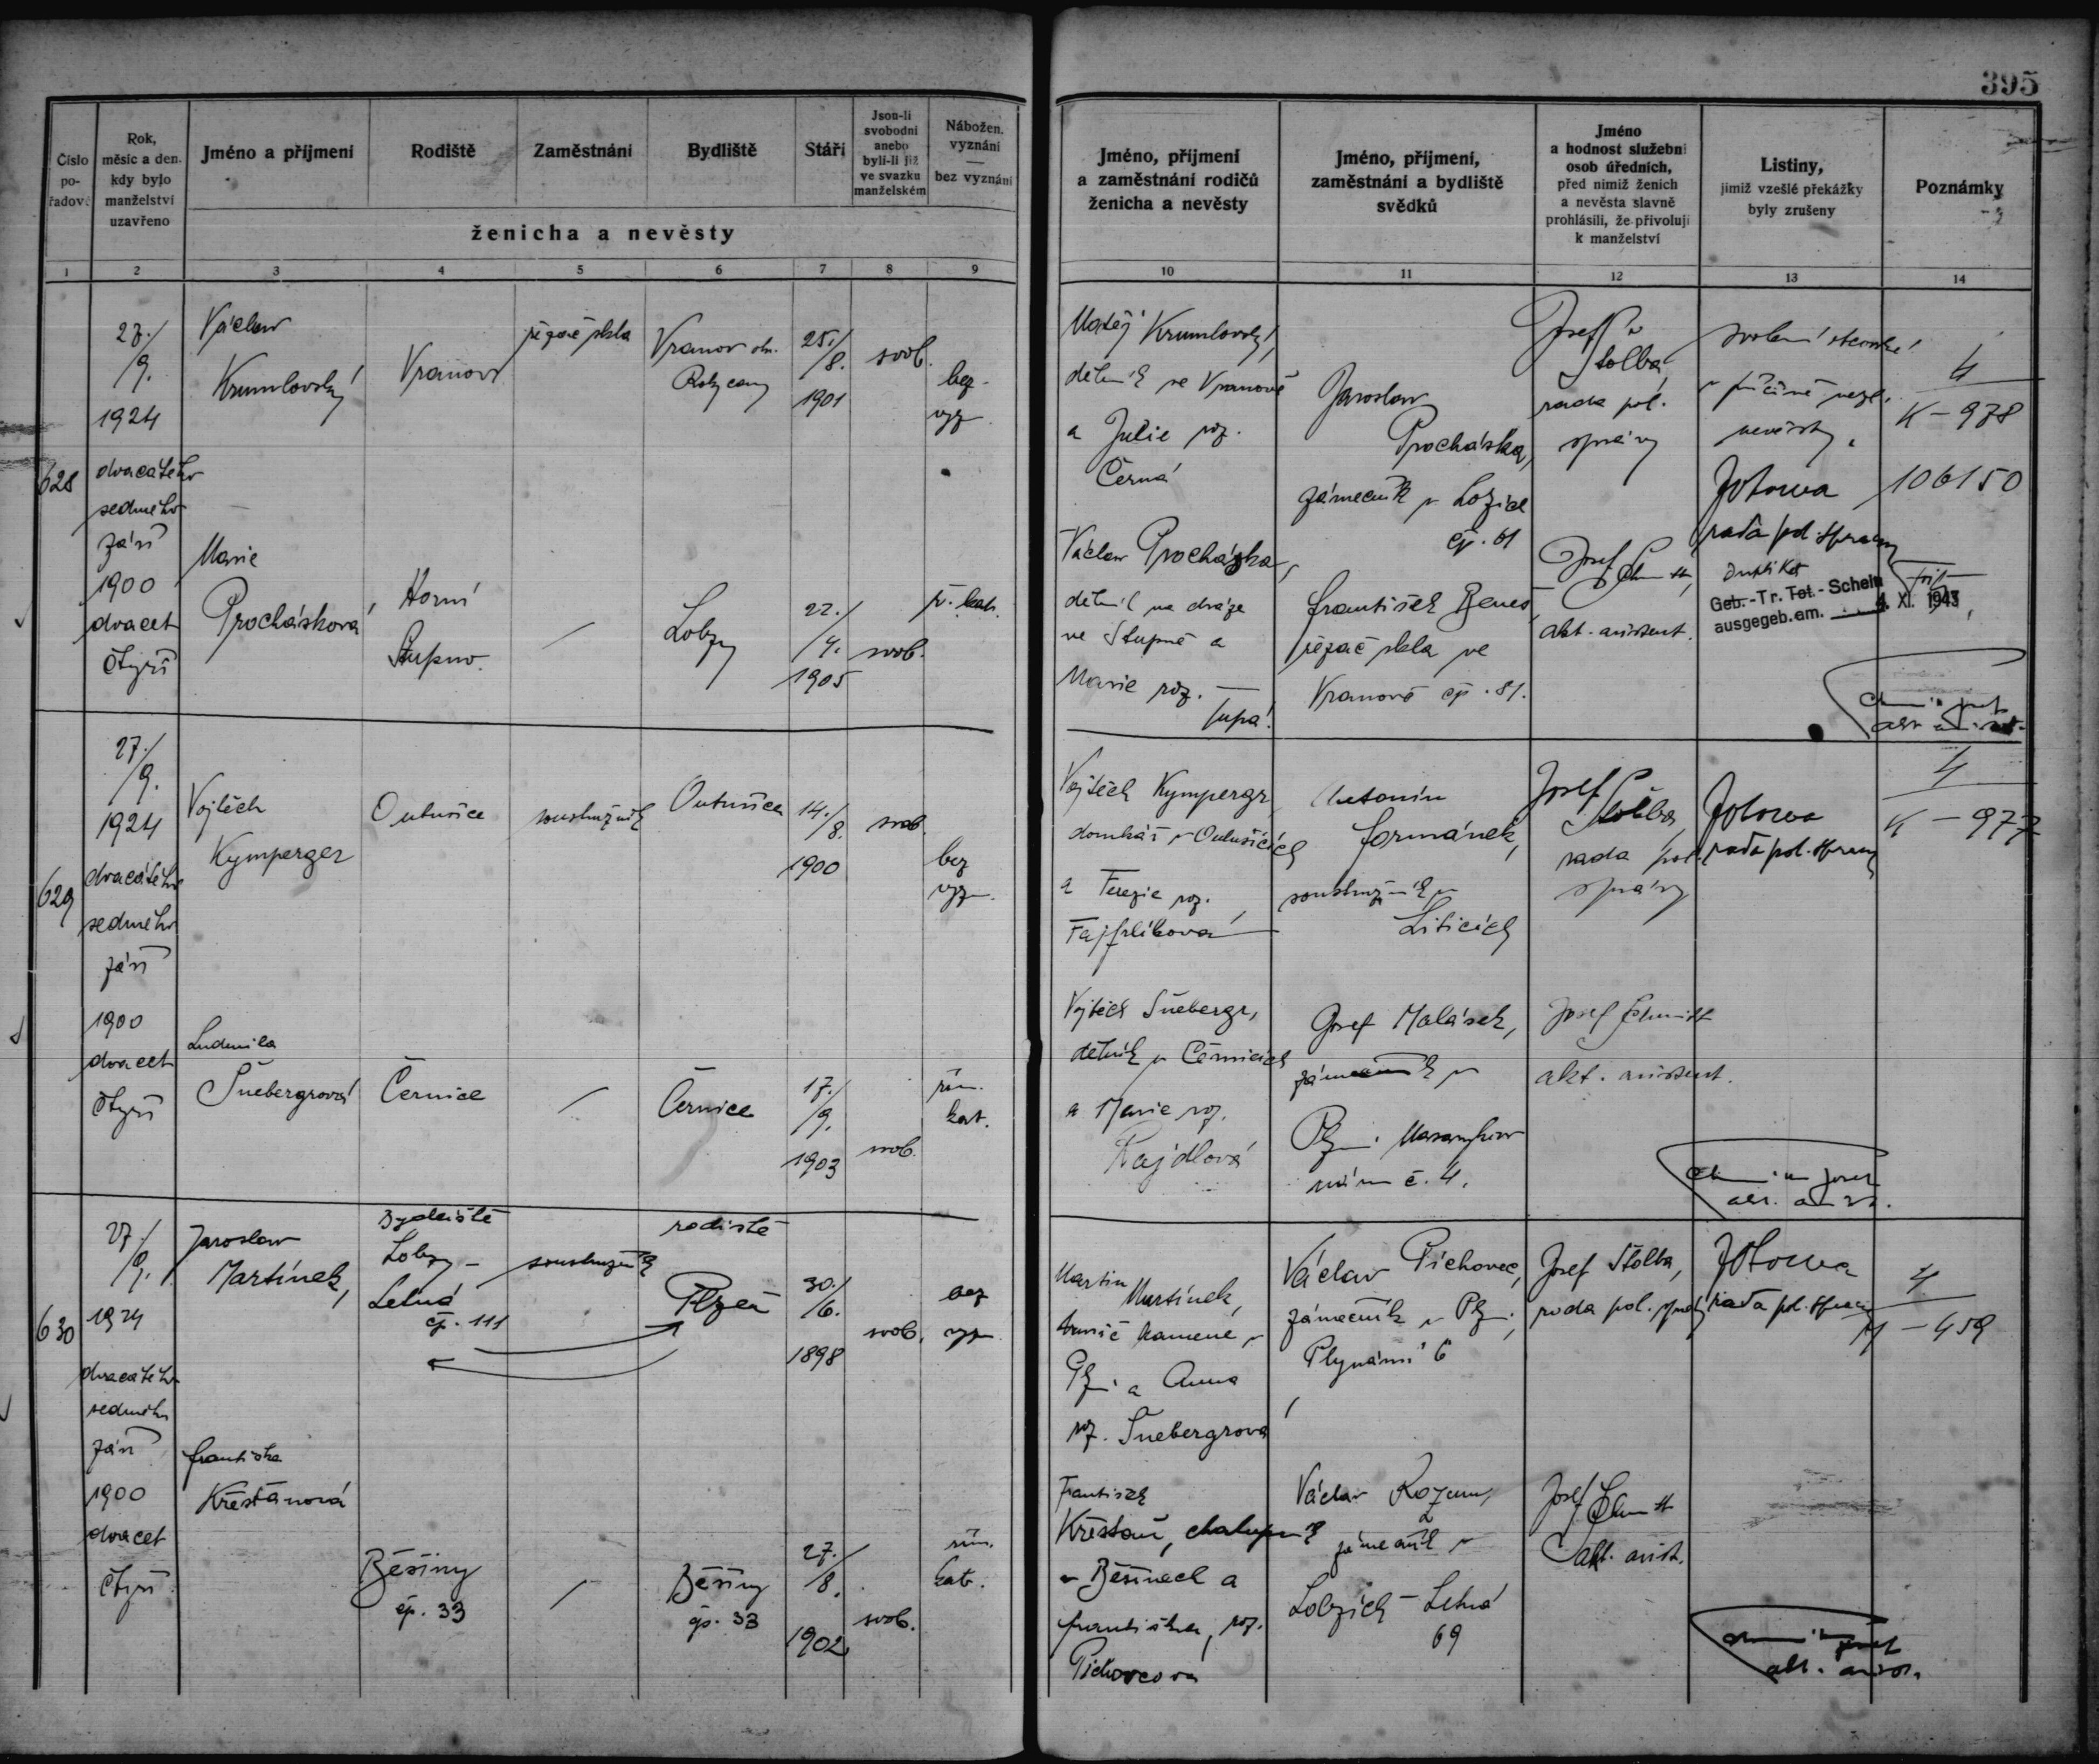 395
Číslo
po-
řadové
Rok,
měsíc a den.
kdy bylo
manželství
uzavřeno
Jméno a příjmení
Rodiště
Zaměstnání
Bydliště
Stáří
Jsou-li
svobodni
anebo
byli-li již
ve svazku
manželském
Nábožen.
vyznání
—
bez vyznání
ženicha a nevěsty
Jméno, příjmení
a zaměstnání rodičů
ženicha a nevěsty
Jméno, příjmení,
zaměstnání a bydliště
svědků
Jméno
a hodnost služební
osob úředních,
před nimiž ženich
a nevěsta slavně
prohlásili, že přivolují
k manželství
Listiny,
jimiž vzešlé překážky
byly zrušeny
Poznámky
1 2 3 4 5 6 7 8 9 10 11 12 13 14
628
27./
9.
1924
dvacátého
sedmého
září
1900
dvacet
čtyři
Václav
Krumlovský
Vranov
řezač skla
Vranov
Rokycany
25./
8.
1901
svob.
bez
vyz.
Matěj Krumlovský,
dělník ve Vranově
a Julie roz.
Černá
Jaroslav
Procházka,
zámečník v Lozice
čp. 61
Josef
Stolba,
rada pol.
správy
svolení otcovské
nevěsty.
rada pol. správy
4
K – 978
106150
Marie
Procházková
Horní
Stupno.
/
Lobzy
22./
4.
1905
svob.
ř. kat.
Václav Procházka,
dělník na dráze
ve Stupně a
Marie roz.
Tupá
František Beneš,
řezač skla ve
Vranově čp. 81.
Josef Schmitt,
akt. assistent.
Duplikat
Geb.-Tr. Tot.-Schein
ausgegeb. am. 4. XI. 1943
629
27./
9.
1924
dvacátého
sedmého
září
1900
dvacet
čtyři
Vojtěch
Kymperger
Outušice
soustružník
Outušice
14./
8.
1900
svob.
bez
vyzn.
Vojtěch Kympergr,
domkář v Outušicích
a Terezie roz.
Fajfrlíková
Antonín
Formánek,
soustružník v
Liticích
Josef
Stolba,
rada pol.
správy
rada pol. správy
4
K – 977
Ludmila
Šnebergrová
Černice
/
Černice
17./
9.
1903
svob.
řím.
kat.
Vojtěch Šnebergr,
dělník v Černicích
a Marie roz.
Rajdlová
Josef Malásek,
zámečník v
Plzni. Masarykovo
nám č. 4.
Josef Schmitt
akt. assistent.
630
27./
9.
1924
dvacátého
sedmého
září
1900
dvacet
čtyři
Jaroslav
Martínek,
Bydliště
Lobzy –
Letná
čp. 111
soustružník
rodiště
Plzeň
30./
6.
1898
svob.
bez
vyzn
Martin
Martínek,
kamene v
Plzni a Anna
roz. Šnebergrová
Václav Pichovec,
zámečník v Plzni,
Plynární 6
Josef Stolba,
rada pol. správy
rada pol. správy
4
M – 459
Františka
Křesťanová
Běšiny
čp. 33
/
Běšiny
čp. 33
27./
8.
1902
svob.
řím.
kat.
František
Křesťan, chalupník
v Běšinech a
Františka, roz.
Pichovcova
Václav Rozum,
zámečník v
Lobzích – Letná
69
Josef Schmitt
akt. asist.